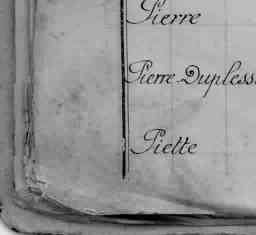 Pierre
Pierre Dupless
Piette